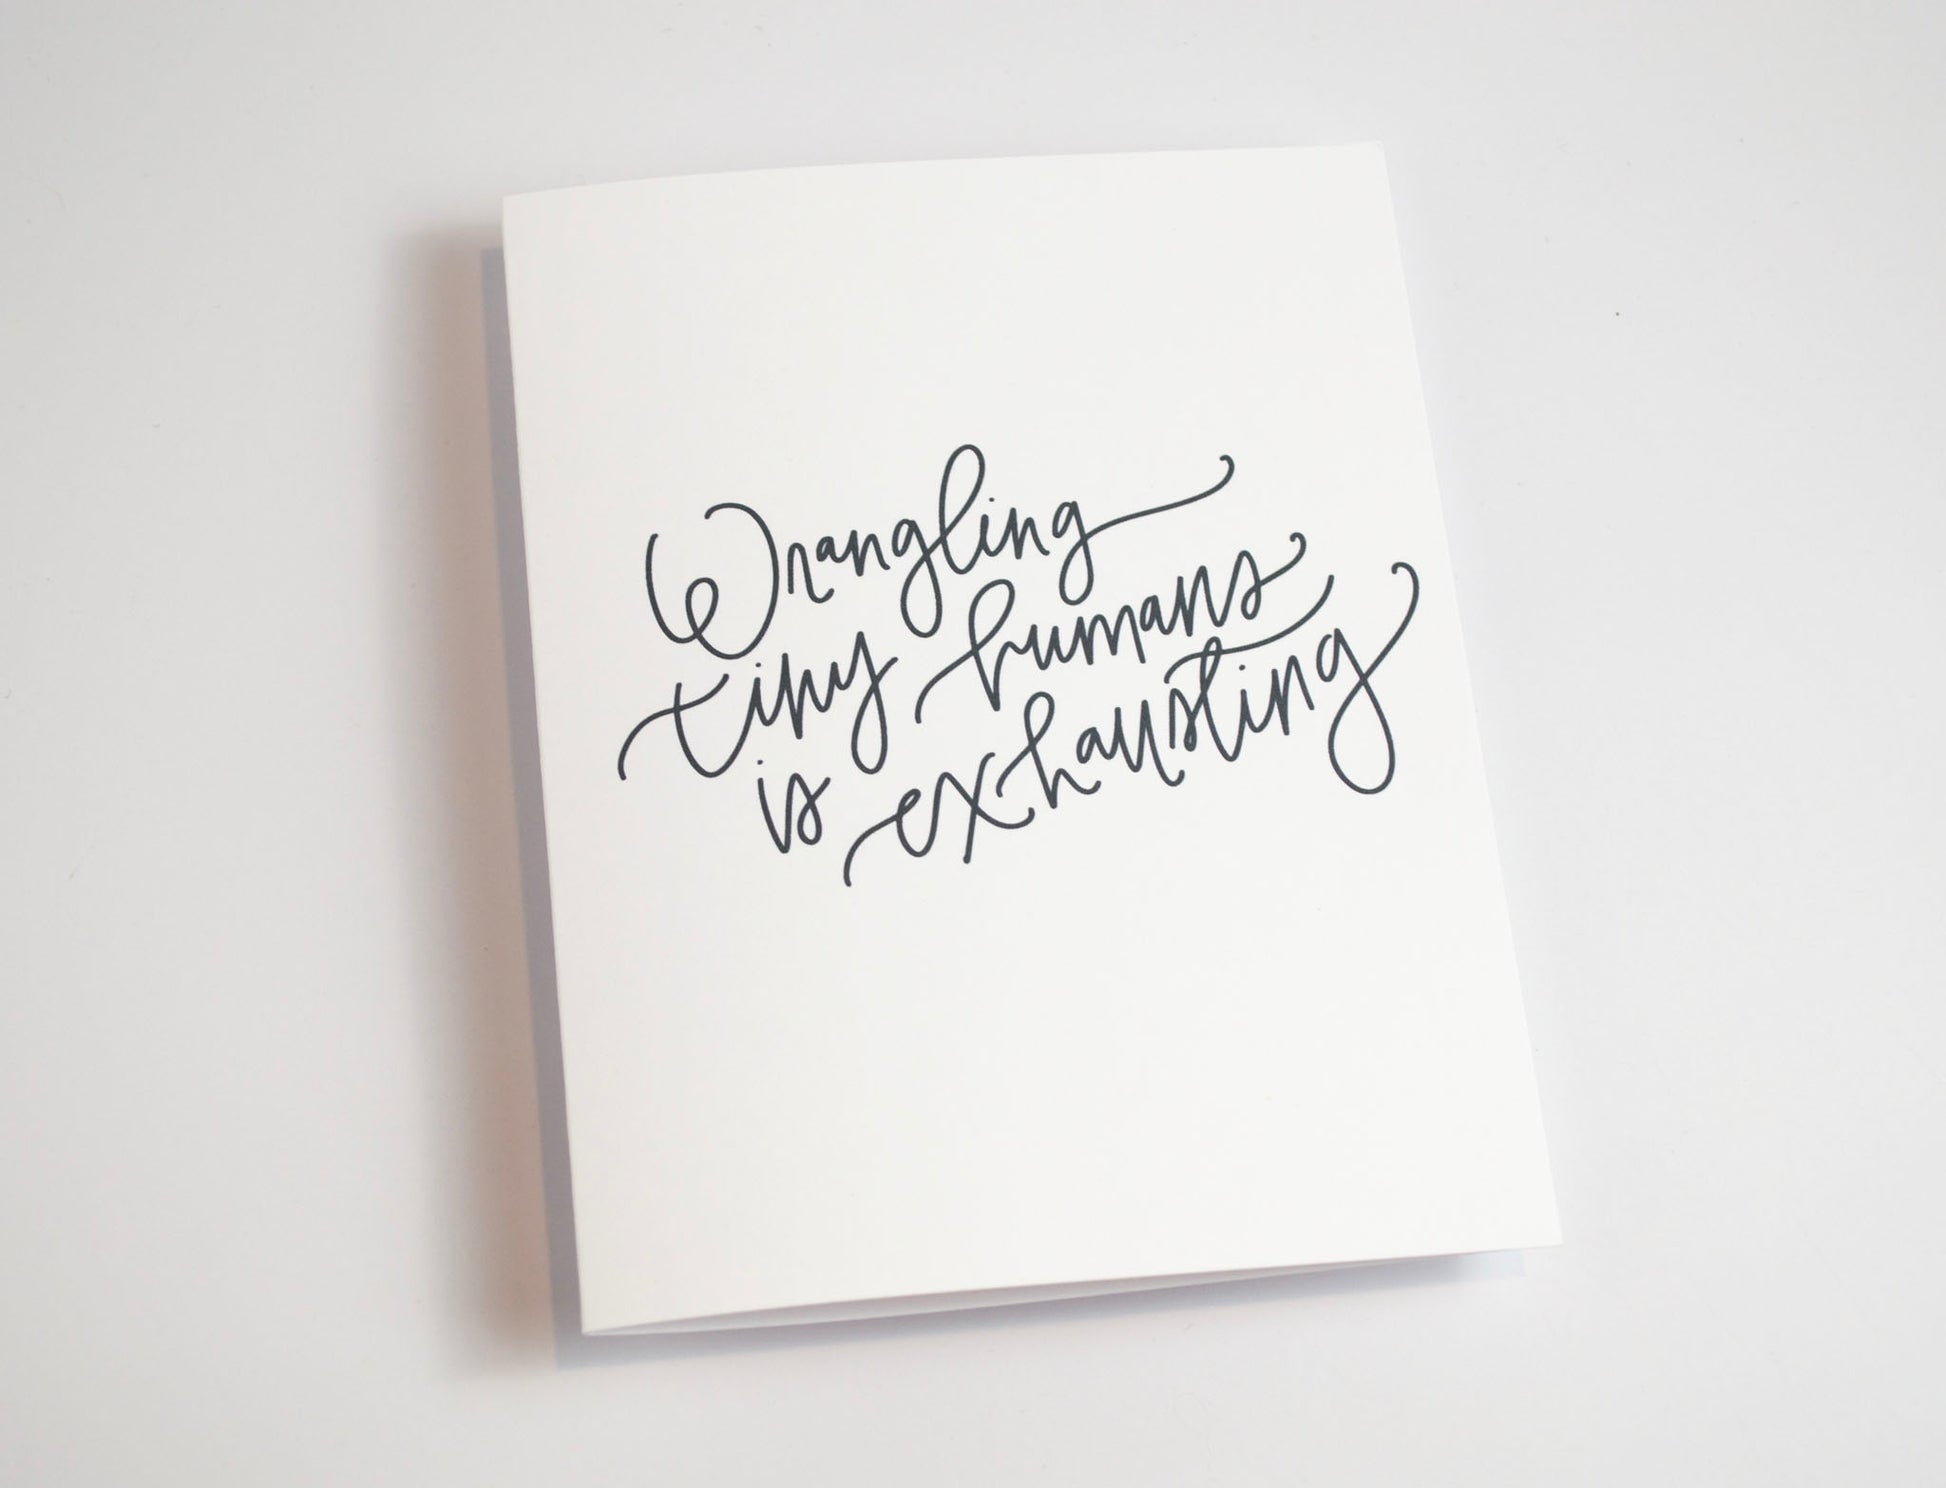 Wrangling
tiny humans
is exhausting